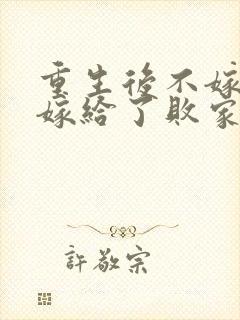 重生後不嫁
嫁給了敗家
許敬宗